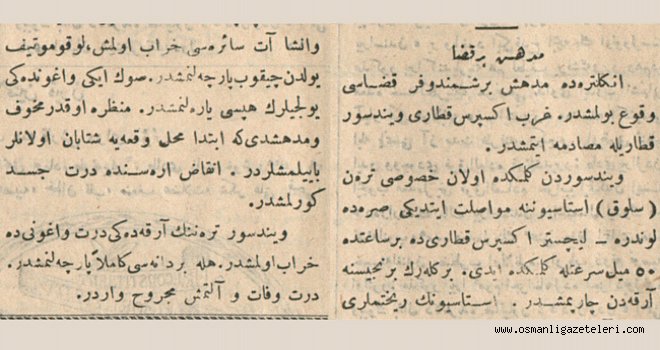 مدهش برقضا
انكلتره‌ده مدهش برشمندوفر قضاسی
وقوع بولمشدر. غرب اكسپرس قطاری ویندسور
قطاریله مصادمه ایتمشدر.
ویندسوردن كلمكده اولان خصوصی ترەن
(سلوق) استاسیوننه مواصلت ایتدیكی صره‌ده
لوندره ـ لیچستر اكسپرس قطاری ده برساعتده
٥٠ میل سرعتله كلمكده ایدی. برکله‌رك برنجیسنه
آرقه‌دن چارپمشدر. استاسیونك ریختملری
وانشا آت سائره‌سی خراب اولمش، لوقوموتیف
یولدن چیقوب پارچه‌لنمشدر. صوك ایكی واغونده‌كی
یولجیلرك هپسی یاره‌لنمشدر. منظره اوقدر مخوف
ومدهشدی كه ابتدا محل وقعه‌یه شتابان اولانلر
بایلمشلردر. انقاض اره‌سنده درت جسد
كورلمشدر.
ویندسور ترەننك آرقه‌ده‌كی درت واغونی ده
خراب اولمشدر. هله بردانه‌سی كاملاً پارچه‌لنمشدر.
درت وفات و آلتمش مجروح واردر.
www.osmanligazeteleri.com